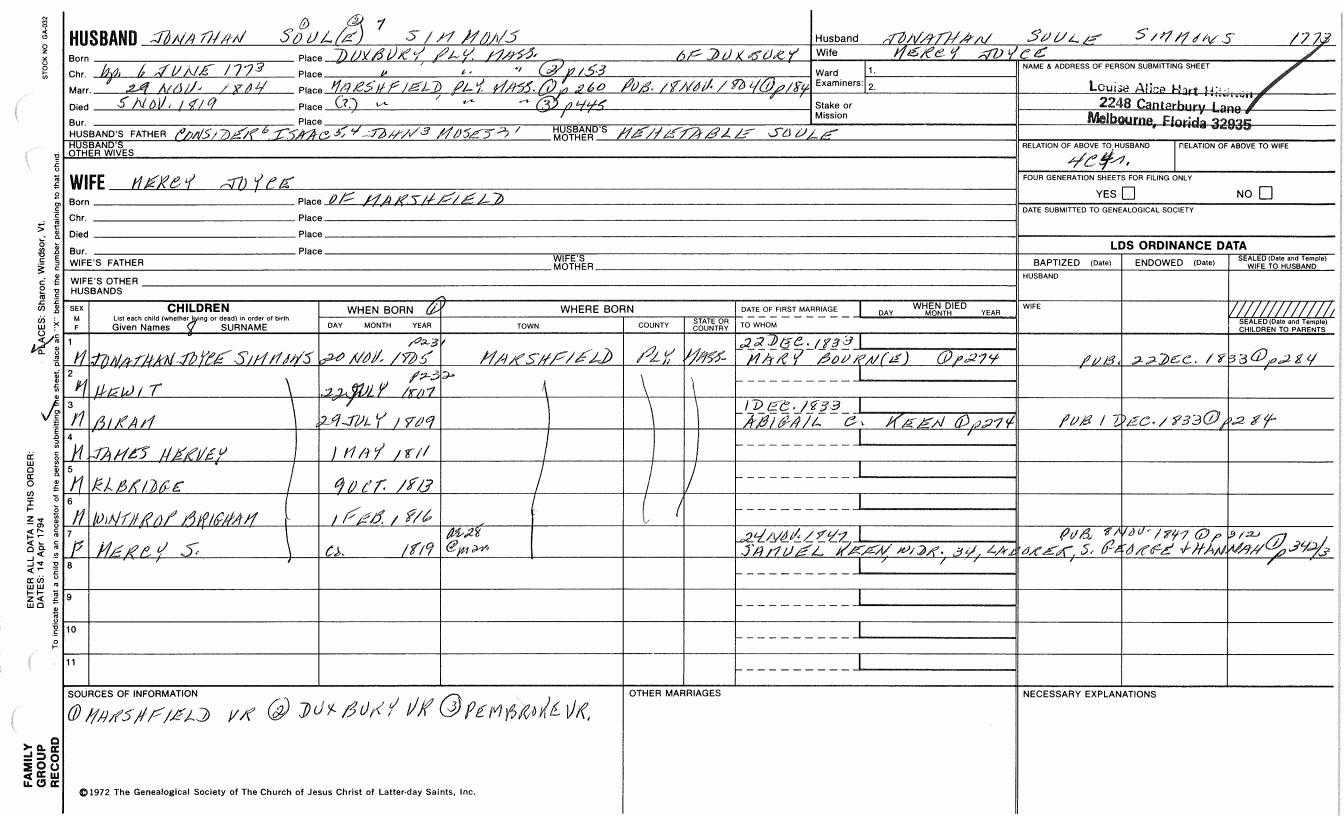 STOCK NO. GA-032
HUSBAND JONATHAN SOUL(E) ① ② 7 SIMMONS
Born Place DUXBURY, PLY. MASS. OF DUXBURY
Chr. bp. 6 JUNE 1773 Place " " " ② p153
Marr. 29 NOV. 1804 Place MARSHFIELD, PLY. MASS. ① p 260 PUB. 18 NOV. 1804 ① p184
Died 5 NOV. 1819 Place (?) " " " ③ p445
Bur. Place
HUSBAND'S FATHER CONSIDER 6 ISAAC 5,4 JOHN 3 MOSES 2,1 HUSBAND'S MOTHER MEHETABLE SOULE
HUSBAND'S OTHER WIVES
WIFE MERCY JOYCE
Born Place OF MARSHFIELD
Chr. Place
Died Place
Bur. Place
WIFE'S FATHER WIFE'S MOTHER
WIFE'S OTHER HUSBANDS
Husband JONATHAN SOULE SIMMONS 1773
Wife MERCY JOYCE
Ward Examiners: 1.
2.
Stake or Mission
NAME & ADDRESS OF PERSON SUBMITTING SHEET
Louise Alice Hart
2248 Canterbury Lane
Melbourne, Florida 32935
RELATION OF ABOVE TO HUSBAND RELATION OF ABOVE TO WIFE
FOUR GENERATION SHEETS FOR FILING ONLY
YES NO
DATE SUBMITTED TO GENEALOGICAL SOCIETY
LDS ORDINANCE DATA
BAPTIZED (Date) ENDOWED (Date) SEALED (Date and Temple) WIFE TO HUSBAND
HUSBAND
WIFE
SEALED (Date and Temple) CHILDREN TO PARENTS
SEX M F
CHILDREN
List each child (whether living or dead) in order of birth
Given Names 8 SURNAME
WHEN BORN ①
DAY MONTH YEAR
WHERE BORN
TOWN COUNTY STATE OR COUNTRY
DATE OF FIRST MARRIAGE
TO WHOM
WHEN DIED
DAY MONTH YEAR
1 p231 22 DEC. 1833
M JONATHAN JOYCE SIMMONS 20 NOV. 1805 MARSHFIELD PLY. MASS. MARY BOURN(E) ① p274 PUB. 22 DEC. 1833 ① p284
2 p232
M HEWIT 22 JULY 1807
3 1 DEC. 1833
M BIRAM 29 JULY 1809 ABIGAIL C. KEEN ① p274 PUB 1 DEC. 1833 ① p284
4
M JAMES HERVEY 1 MAY 1811
5
M ELBRIDGE 9 OCT. 1813
6
M WINTHROP BRIGHAM 1 FEB. 1816
7 ae 28 24 NOV. 1847 PUB. 8 NOV. 1847 ① p 312
F MERCY S. ca. 1819 @ marr SAMUEL KEEN, WIDR., 34, LABORER, S. GEORGE + HANNAH ① p 342/3
8
9
10
11
SOURCES OF INFORMATION
① MARSHFIELD VR ② DUXBURY VR ③ PEMBROKE VR.
OTHER MARRIAGES
NECESSARY EXPLANATIONS
©1972 The Genealogical Society of The Church of Jesus Christ of Latter-day Saints, Inc.
FAMILY GROUP RECORD
ENTER ALL DATA IN THIS ORDER:
DATES: 14 Apr 1794
PLACES: Sharon, Windsor, Vt.
To indicate that a child is an ancestor of the person submitting the sheet, place an "X" behind the number pertaining to that child.